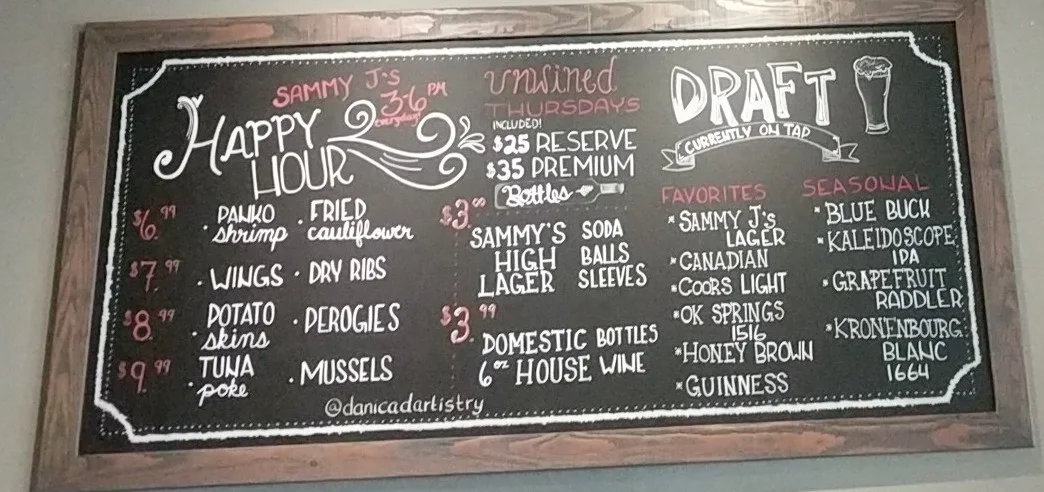 SAMMY J'S
3-6 PM
everyday!
HAPPY
HOUR
$6.99
PANKO
· shrimp
· FRIED
cauliflower
$7.99
· WINGS · DRY RIBS
$8.99
POTATO
· skins
· PEROGIES
$9.99
TUNA
· poke
· MUSSELS
@danicadartistry
unwined
THURSDAYS
INCLUDED!
$25 RESERVE
$35 PREMIUM
Bottles
$3.00
SAMMY'S SODA
HIGH BALLS
LAGER SLEEVES
$3.99
DOMESTIC BOTTLES
6oz HOUSE WINE
DRAFT
CURRENTLY ON TAP
FAVORITES
*SAMMY J's
LAGER
*CANADIAN
*COORS LIGHT
*OK SPRINGS
1516
*HONEY BROWN
*GUINNESS
SEASONAL
*BLUE BUCK
*KALEIDOSCOPE
IPA
*GRAPEFRUIT
RADDLER
*KRONENBOURG
BLANC
1664